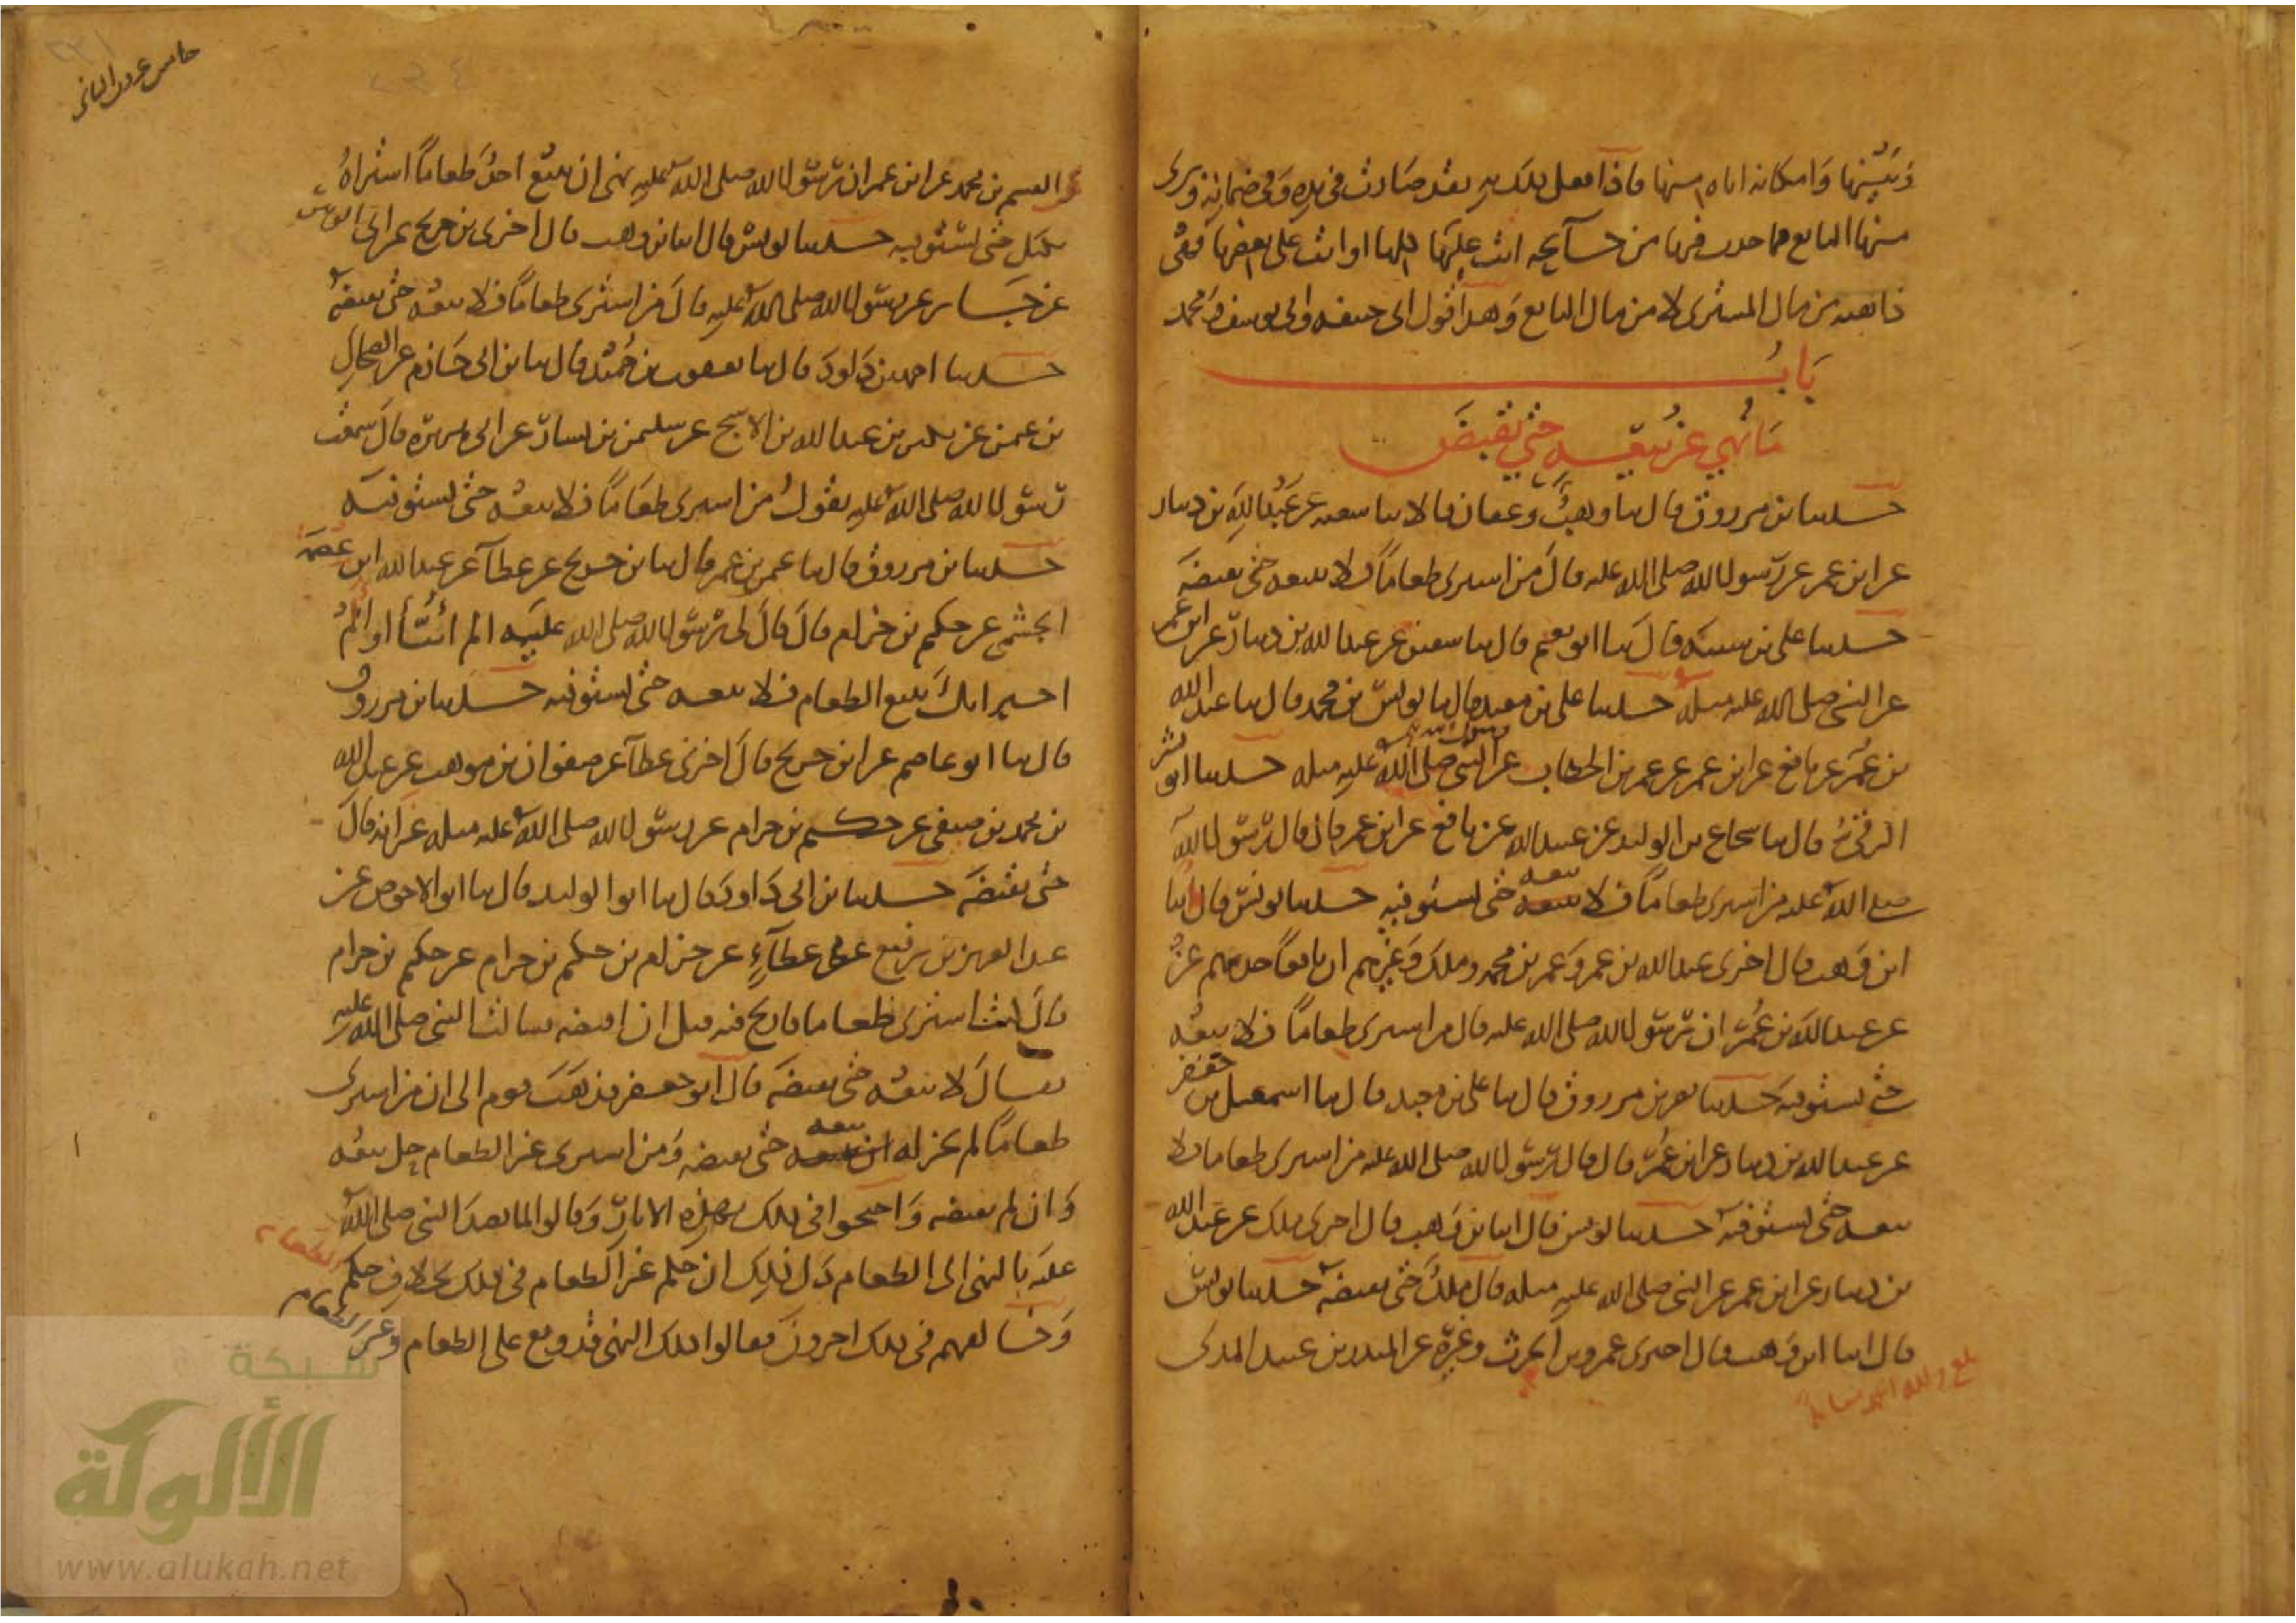 وبينها وامكانه اياه منها فاذا فعل ذلك به فقد صارت في يده وفي ضمانه وبرى
منها البايع فما حدث فيها من جايحة اتت عليها كلها او اتت على بعضها فهى
ذاهبة من مال المشترى لا من مال البايع وهذا قول ابى حنيفه وابى يوسف ومحمد
باب
ما نهي عن بيعه حتي تقبض
حدثنا بن مرزوق قال ثنا وهب وعفان قالا ثنا شعبه عن عبد الله بن دينار
عن ابن عمر عن رسول الله صلى الله عليه قال من اشترى طعاماً فلا يبعه حتى يقبضه
حدثنا على بن شيبه قال ثنا ابو نعيم قال ثنا سفين عن عبد الله بن دينار عن ابن عمر
عن النبي صلى الله عليه مثله حدثنا على بن معبد قال ثنا يونس بن محمد قال ثنا عبد الله
بن عمر عن نافع عن ابن عمر عن عمر بن الخطاب عن النبي صلى الله عليه مثله حدثنا ابو بشر
الرقى قال ثنا شجاع بن الوليد عن عبيد الله عن نافع عن ابن عمر قال قال رسول الله
صلى الله عليه من اشترى طعاماً فلا يبعه حتى يستوفيه حدثنا يونس قال انا
ابن وهب قال اخبرنى عبد الله بن عمر وعمر بن محمد وملك وغيرهم ان نافعاً حدثهم عن
عن عبد الله بن عمر ان رسول الله صلى الله عليه قال من اشترى طعاماً فلا يبعه
حتى يستوفيه حدثنا نصر بن مرزوق قال ثنا على بن معبد قال ثنا اسمعيل بن جعفر
عن عبد الله بن دينار عن ابن عمر قال قال رسول الله صلى الله عليه من اشترى طعاما فلا
يبعه حتى يستوفيه حدثنا يونس قال انا بن وهب قال اخبرنى ملك عن عبد الله
بن دينار عن ابن عمر عن النبي صلى الله عليه مثله قال ملك حتى يقبضه حدثنا يونس
قال انا ابن وهب قال اخبرنى عمرو بن الحرث وغيره عن المنذر بن عبيد المدنى
بلغ ولله الحمد
عن القسم بن محمد عن ابن عمر ان رسول الله صلى الله عليه نهى ان يبيع احد طعاماً اشتراه
بكيل حتى يستوفيه حدثنا يونس قال انا بن وهب قال اخبرنى بن جريج عن ابى الزبير
عن جابر عن رسول الله صلى الله عليه قال من اشترى طعاماً فلا يبعه حتى يقبضه
حدثنا احمد بن داود قال ثنا يعقوب بن حميد قال ثنا بن ابى حازم عن الضحاك
بن عثمن عن بكير بن عبد الله بن الاشج عن سليمن بن يسار عن ابى هريرة قال سمعت
رسول الله صلى الله عليه يقول من اشترى طعاماً فلا يبعه حتى يستوفيه
حدثنا بن مرزوق قال ثنا عثمن بن عمر قال ثنا بن جريج عن عطآ عن عبد الله ابن عصمه
الجشمى عن حكيم بن حزام قال قال لى رسول الله صلى الله عليه الم انبأ او الم
اخبر انك تبيع الطعام فلا تبعه حتى تستوفيه حدثنا بن مرزوق
قال ثنا ابو عاصم عن ابن جريج قال اخبرنى عطآ عن صفوان بن موهب عن عبد الله
بن محمد بن صيفى عن حكيم بن حزام عن رسول الله صلى الله عليه مثله غير انه قال
حتى تقبضه حدثنا بن ابى داود قال ثنا ابو الوليد قال ثنا ابو الاحوص عن
عبد العزيز بن رفيع عن عطآء عن حزام بن حكيم بن حزام عن حكيم بن حزام
قال كنت اشترى طعاما فاربح فيه قبل ان اقبضه فسالت النبي صلى الله عليه
فقال لا تبعه حتى تقبضه قال ابو جعفر فذهب قوم الى ان من اشترى
طعاماً لم يجز له بيعه حتى يقبضه ومن اشترى غير الطعام حل بيعه
وان لم يقبضه واحتجوا في ذلك بهذه الاثار وقالوا لما قصد النبي صلى الله
عليه بالنهى الى الطعام دل ذلك ان حكم غير الطعام في ذلك بخلاف حكم الطعام
وخالفهم في ذلك اخرون فقالوا ذلك النهى قد وقع على الطعام وغير الطعام
شبكة
الألوكة
www.alukah.net